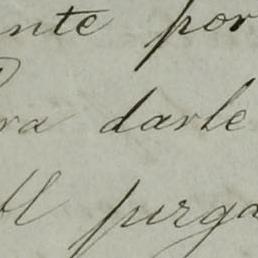 nte por
ra darle
purga